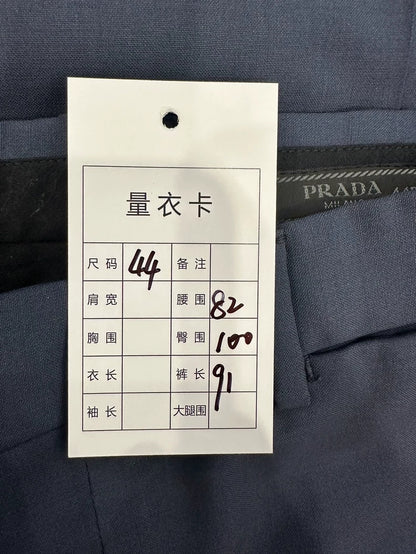 量衣卡
尺码 44 备注
肩宽 腰围 82
胸围 臀围 100
衣长 裤长 91
袖长 大腿围
PRADA
MILANO